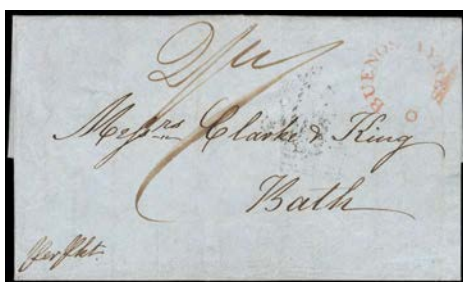 2/11
BUENOS AYRES
Messrs Clarke & King
Bath